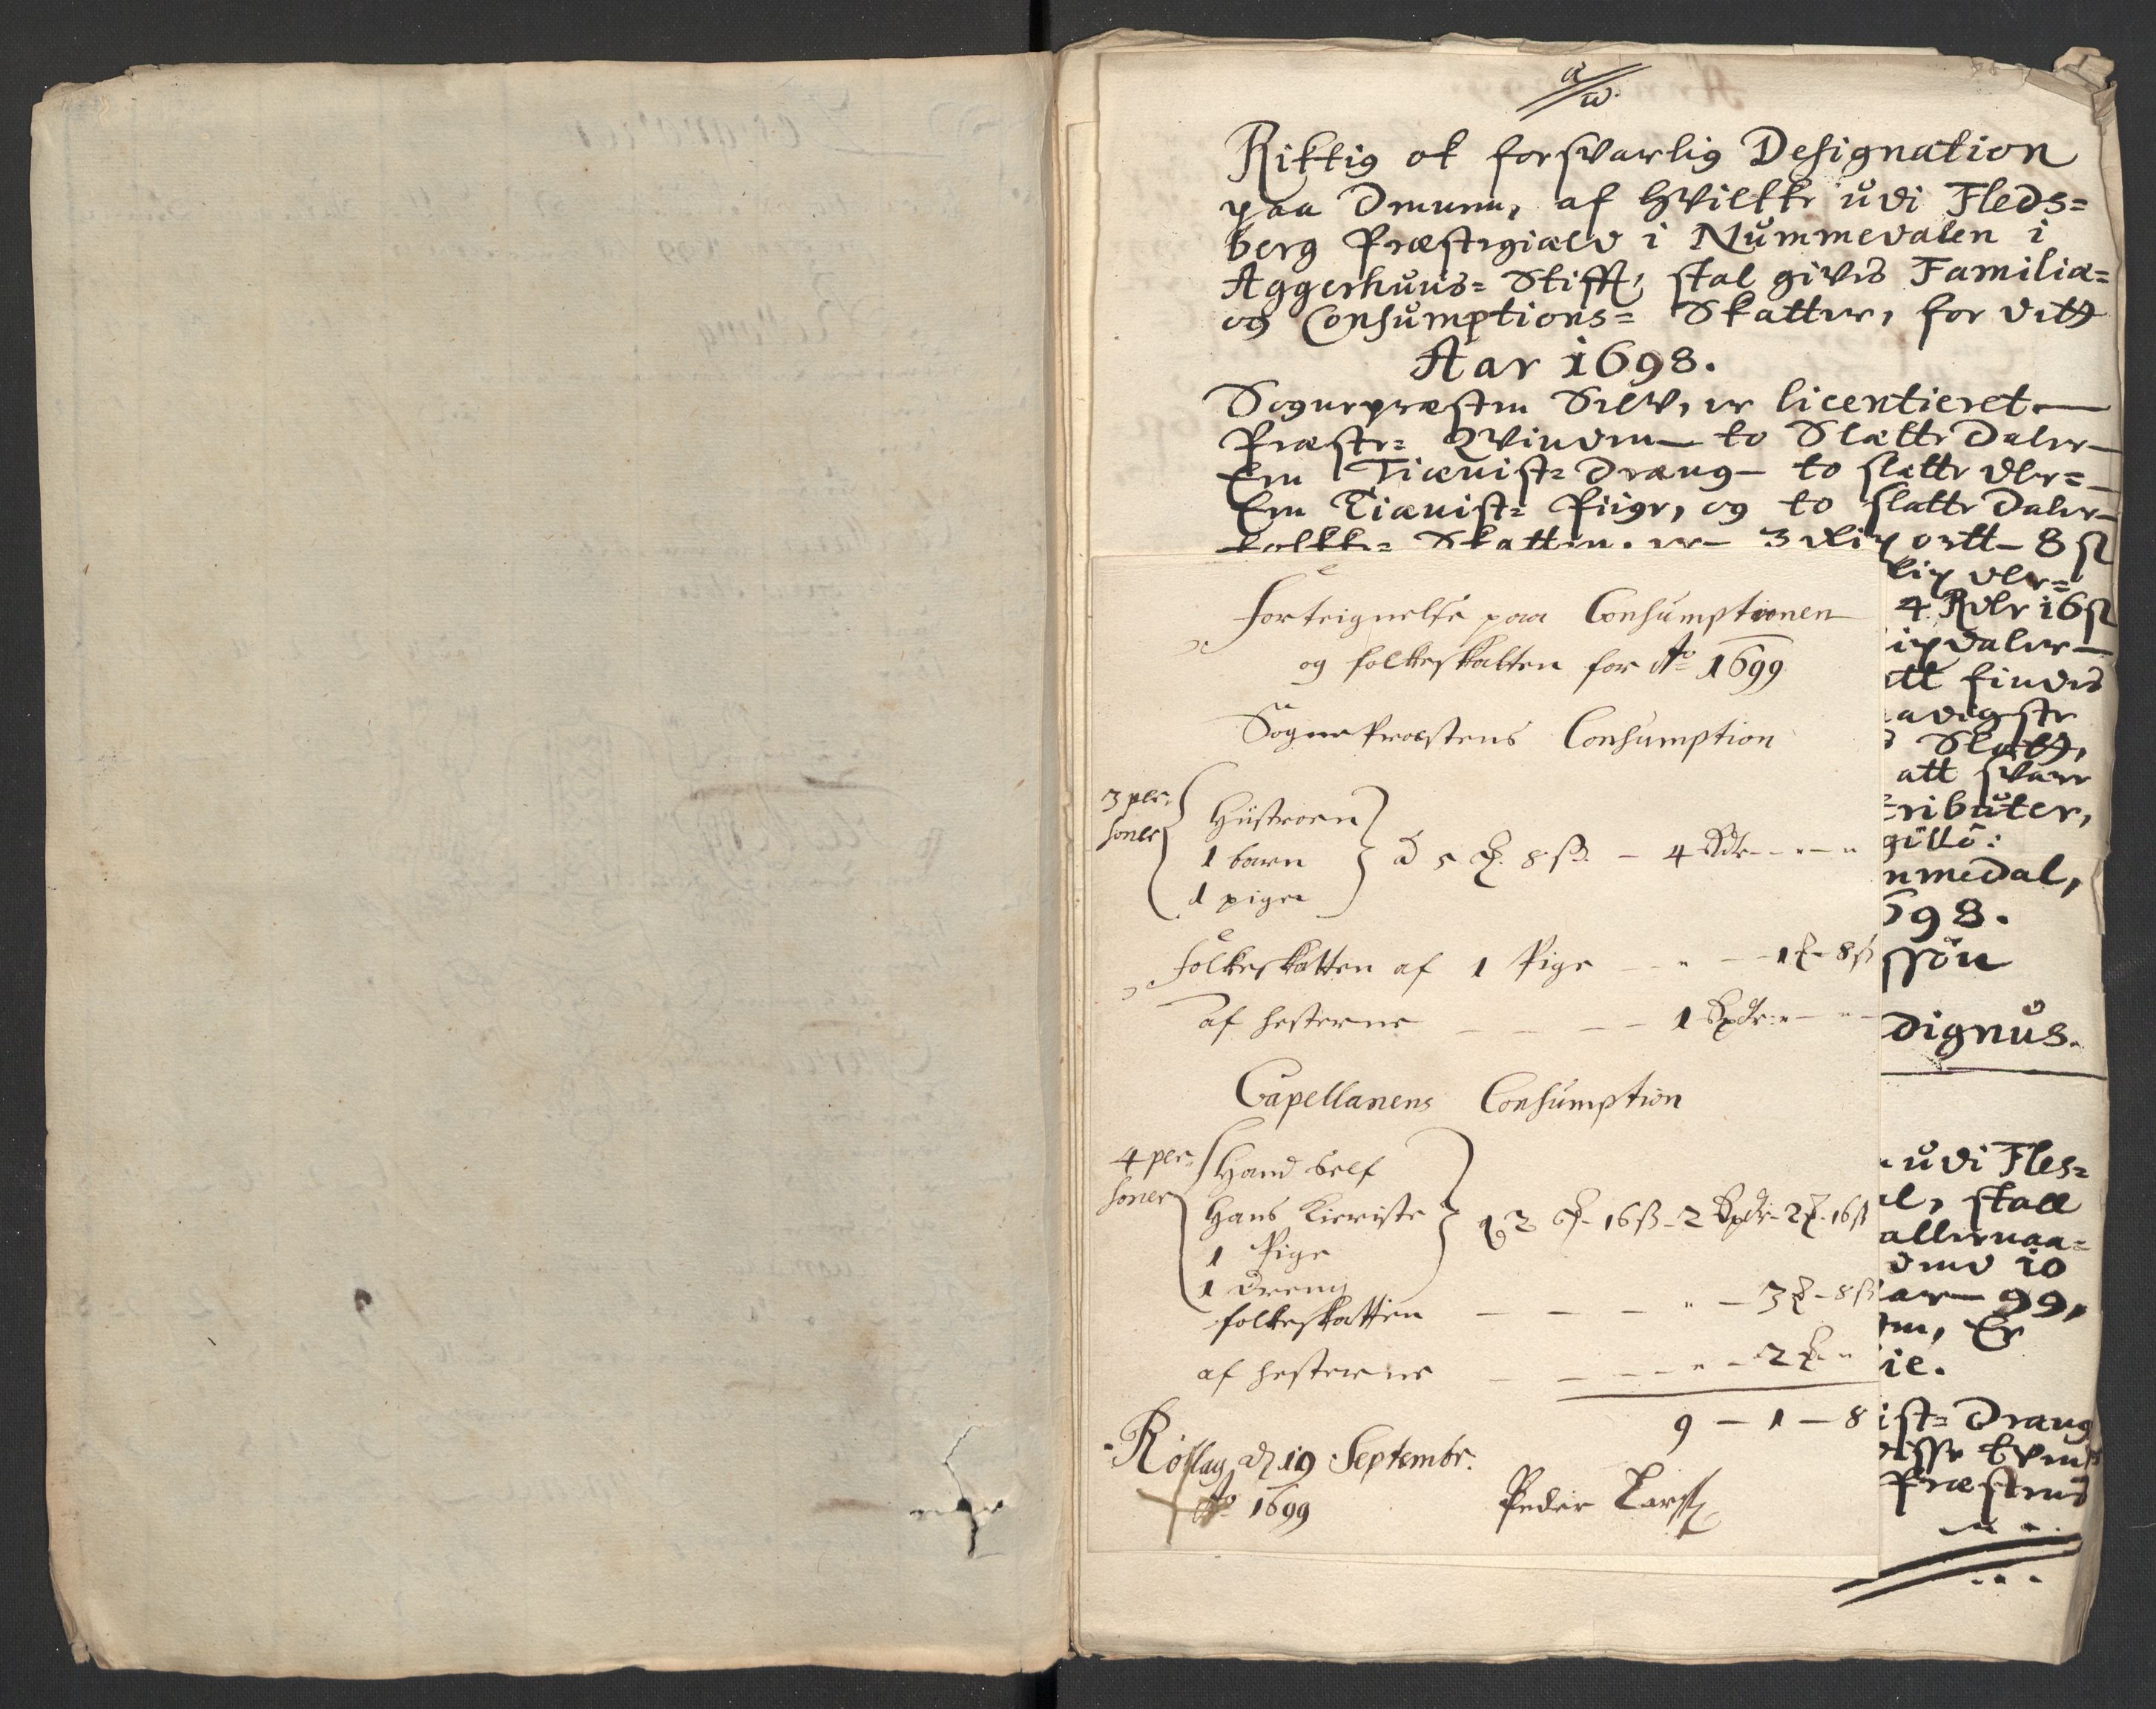 α/ω.
Riktig ok forsvarlig Designation
paa dennem, af hvilkke udi Fleds=
berg Præstegiæld i Nummedalen i
Aggerhuus= Stifft, skal givis Familiæ=
og Consumptions= Skatter, for dett
Aar 1698.
Sognepræsten Selv, er licentieret—
Præste= Qvinden— to Slætte Daler—
Een Tiænist= dræng— to slette dlr=—
Een Tiænist= Piige, og to slette Daler—
folkke= Skatten. er— 3 ort— 8 s
dlr=
4 Rdlr 16 s
daler—
ett findis
adigste
Slætt,
att svare
tributer,
gillö:
nmedal,
698.
ssön
dignus.
Forteignelse paa Consumptionen
og folkeskatten for Ao 1699
SognePræstens Consumption
3 per=
soner
Hustroen
1 barn
1 pige
à 5 8 ß. — 4 Rdr — „ — „
Folkeskatten af 1 Pige — „ — 1 — 8 ß
af hesterne — — — — 1 Rdr „ — „ —
Capellanens Consumption
4 per=
soner
Hand Self
Hans Kieriste
1 Pige
1 Dreng
2 16 ß — 2 Rdr — 2 — 16 ß
folkeskatten — — — „ — 3 — 8 ß
af hesterne — — — — „ — 2 „
9 — 1 — 8
Rollag d 19 Septembr.
Ao 1699
Peder Larss
udi Fles=
al, skall
allernaa=
dend 10
aar 99,
Er
ie.
ist= Dræng
Præstens